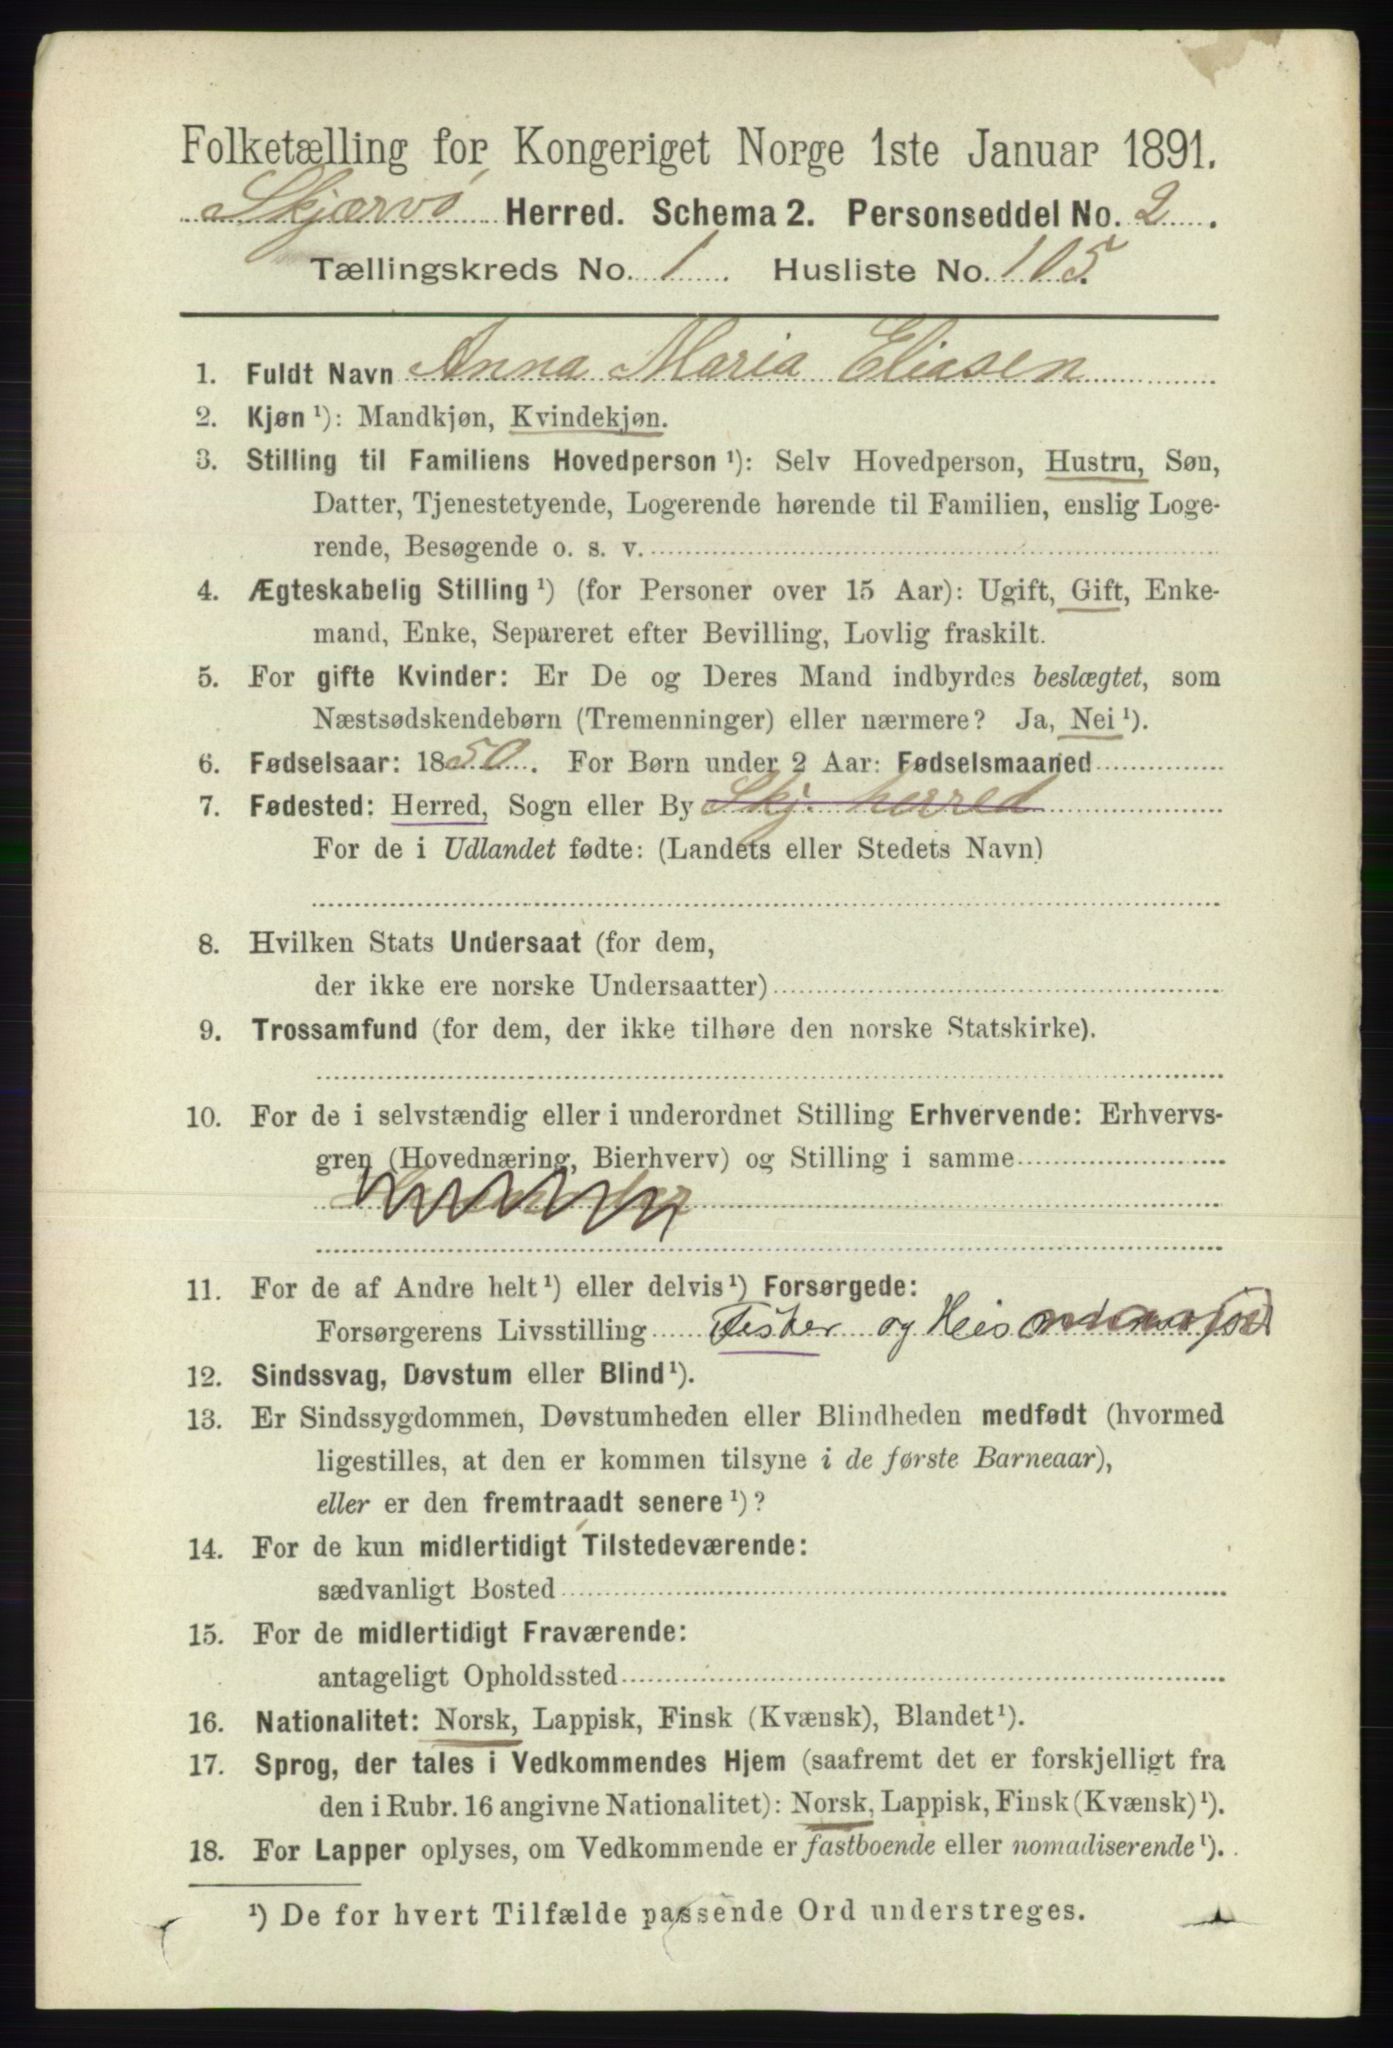 Folketælling for Kongeriget Norge 1ste Januar 1891.
Skjærvö Herred. Schema 2. Personseddel No. 2.
Tællingskreds No. 1. Husliste No. 105.
1. Fuldt Navn Anna Maria Eliasen
2. Kjøn ¹): Mandkjøn, Kvindekjøn.
3. Stilling til Familiens Hovedperson ¹): Selv Hovedperson, Hustru, Søn,
Datter, Tjenestetyende, Logerende hørende til Familien, enslig Loge-
rende, Besøgende o. s. v.
4. Ægteskabelig Stilling ¹) (for Personer over 15 Aar): Ugift, Gift, Enke-
mand, Enke, Separeret efter Bevilling, Lovlig fraskilt.
5. For gifte Kvinder: Er De og Deres Mand indbyrdes beslægtet, som
Næstsødskendebørn (Tremenninger) eller nærmere? Ja, Nei ¹).
6. Fødselsaar: 1850. For Børn under 2 Aar: Fødselsmaaned
7. Fødested: Herred, Sogn eller By Skj. herred
For de i Udlandet fødte: (Landets eller Stedets Navn)
8. Hvilken Stats Undersaat (for dem,
der ikke ere norske Undersaatter)
9. Trossamfund (for dem, der ikke tilhøre den norske Statskirke).
10. For de i selvstændig eller i underordnet Stilling Erhvervende: Erhvervs-
gren (Hovednæring, Bierhverv) og Stilling i samme
11. For de af Andre helt ¹) eller delvis ¹) Forsørgede:
Forsørgerens Livsstilling Fisker og
12. Sindssvag, Døvstum eller Blind ¹).
13. Er Sindssygdommen, Døvstumheden eller Blindheden medfødt (hvormed
ligestilles, at den er kommen tilsyne i de første Barneaar),
eller er den fremtraadt senere ¹)?
14. For de kun midlertidigt Tilstedeværende:
sædvanligt Bosted
15. For de midlertidigt Fraværende:
antageligt Opholdssted
16. Nationalitet: Norsk, Lappisk, Finsk (Kvænsk), Blandet ¹).
17. Sprog, der tales i Vedkommendes Hjem (saafremt det er forskjelligt fra
den i Rubr. 16 angivne Nationalitet): Norsk, Lappisk, Finsk (Kvænsk) ¹).
18. For Lapper oplyses, om Vedkommende er fastboende eller nomadiserende ¹).
¹) De for hvert Tilfælde passende Ord understreges.